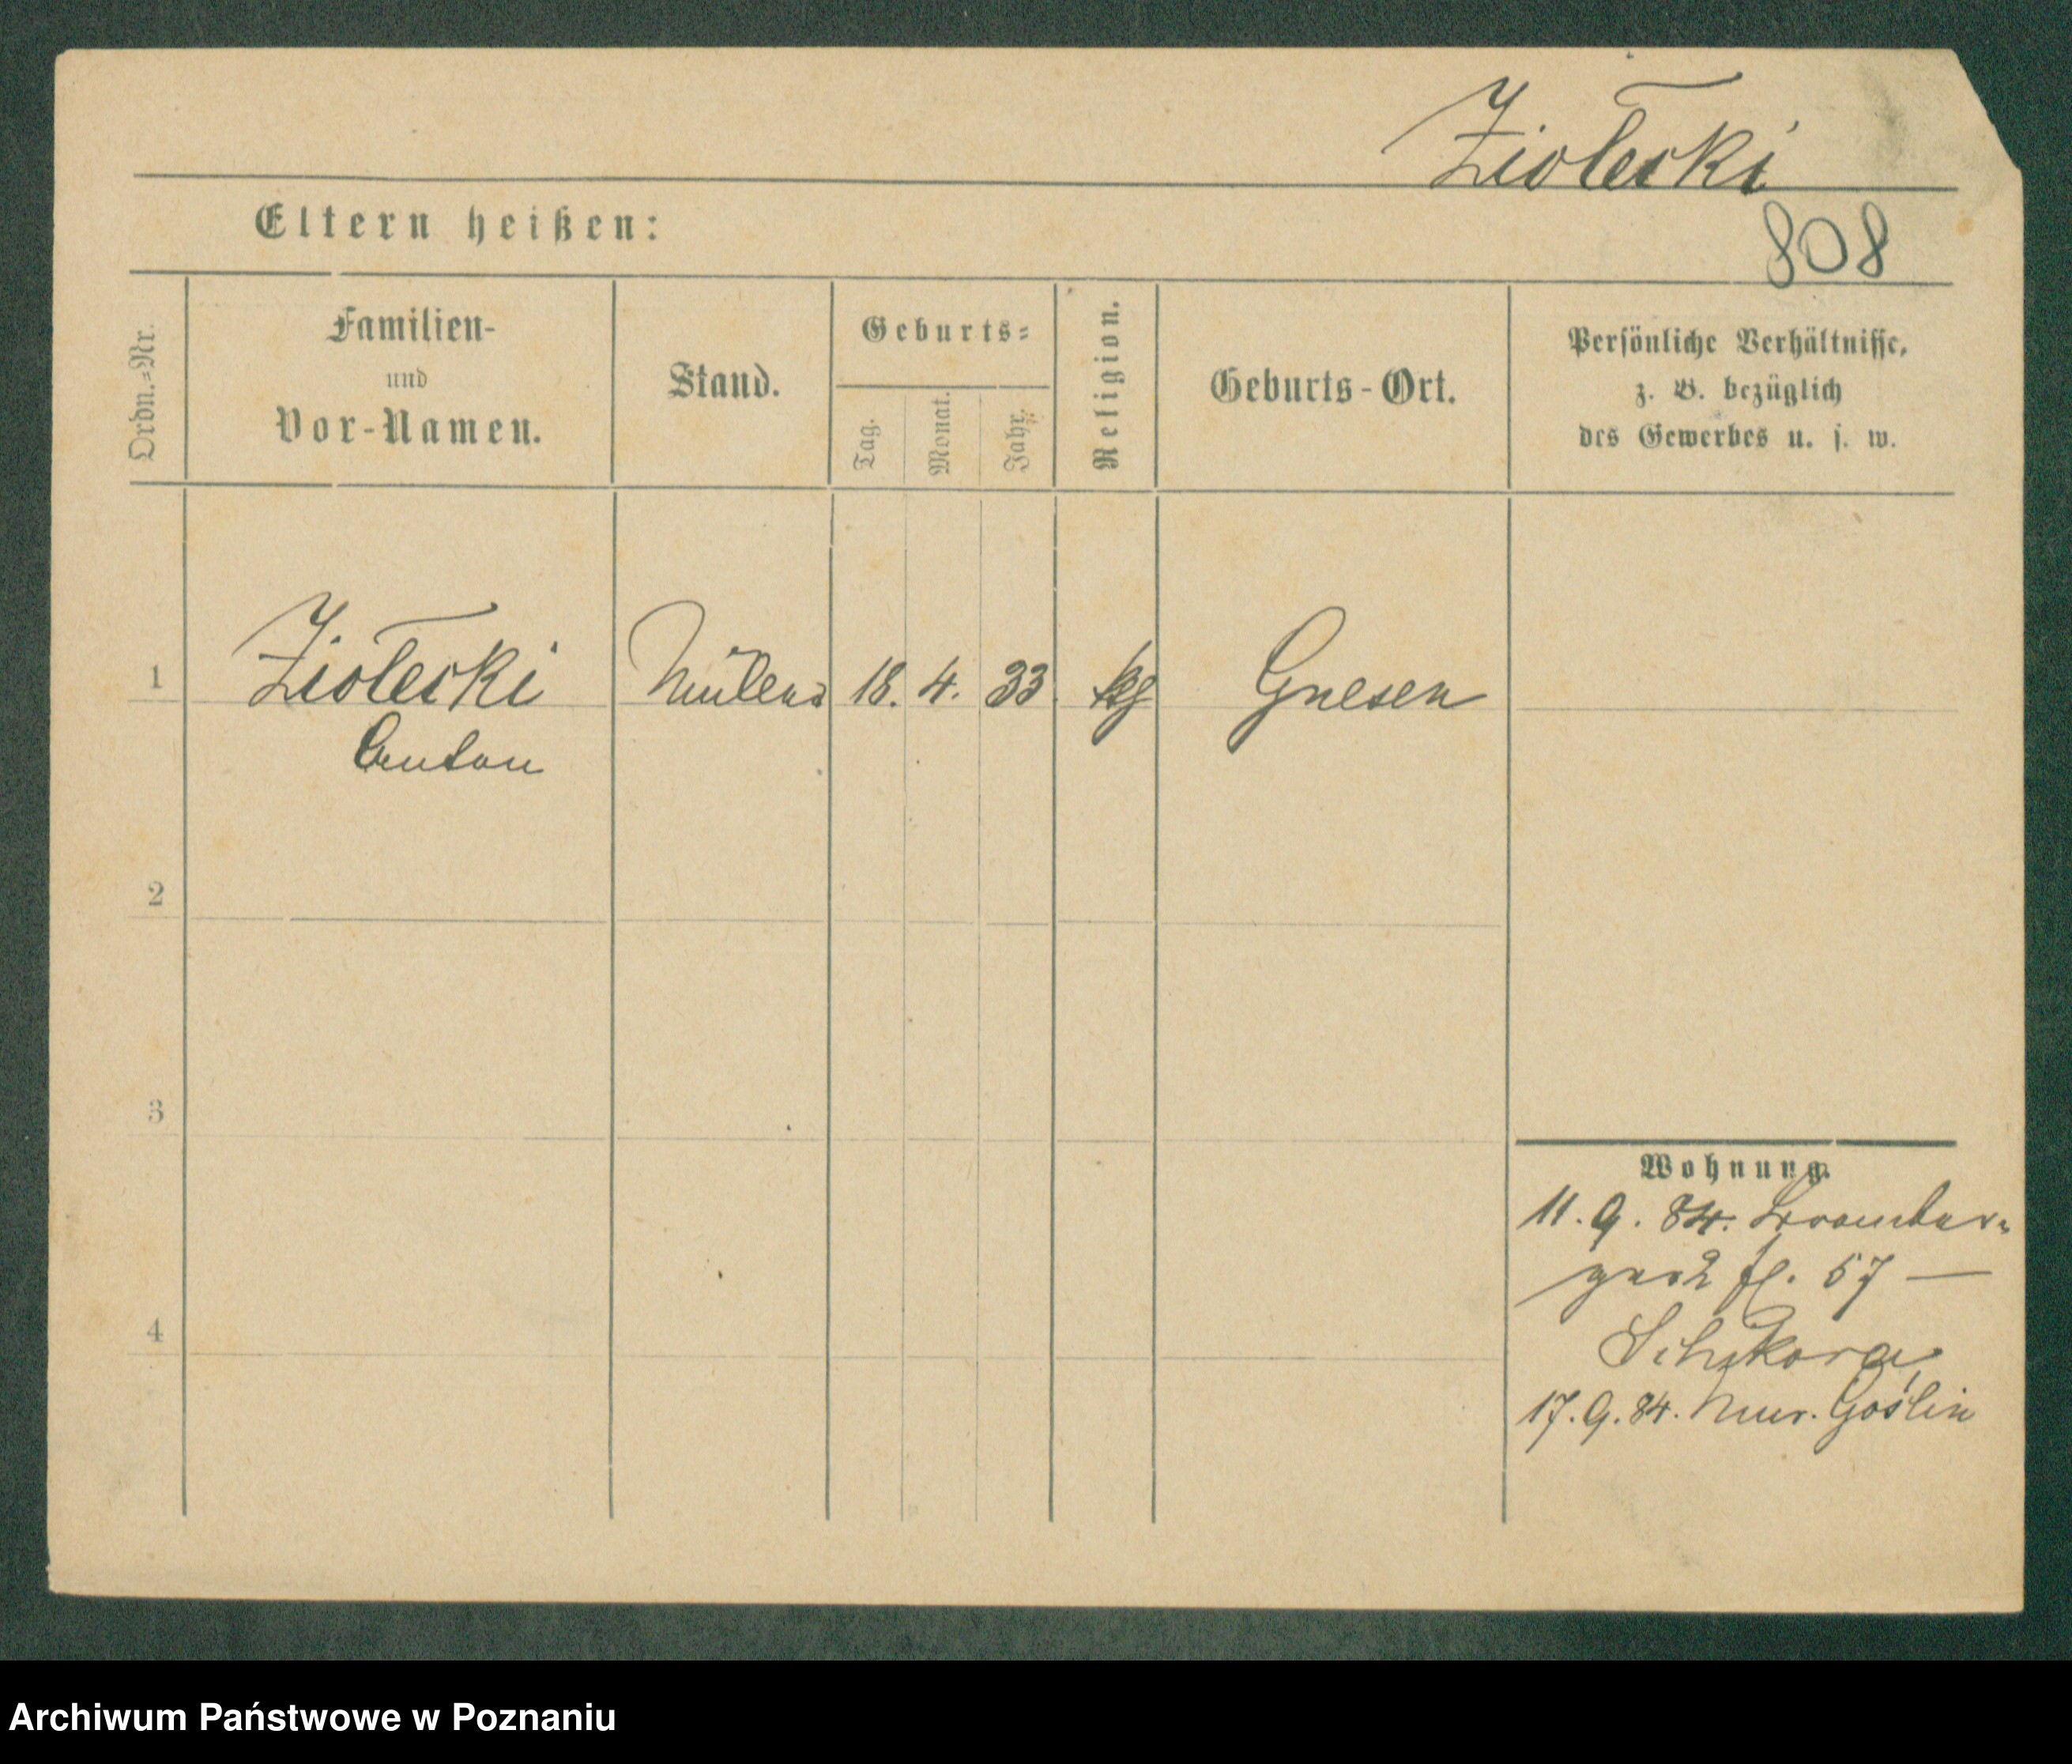 Ziołecki
808
Eltern heißen:
Ordn.-Nr.
Familien-
und
Vor-Namen.
Stand.
Geburts-
Tag.
Monat.
Jahr.
Religion.
Geburts-Ort.
Persönliche Verhältnisse,
z. B. bezüglich
des Gewerbes u. s. w.
1 Ziołecki 18. 4. 33. Gnesen
Anton
2
3
4
Wohnung.
11. 9. 84.
57 —
17. 9. 84. Mur. Goślin
Archiwum Państwowe w Poznaniu